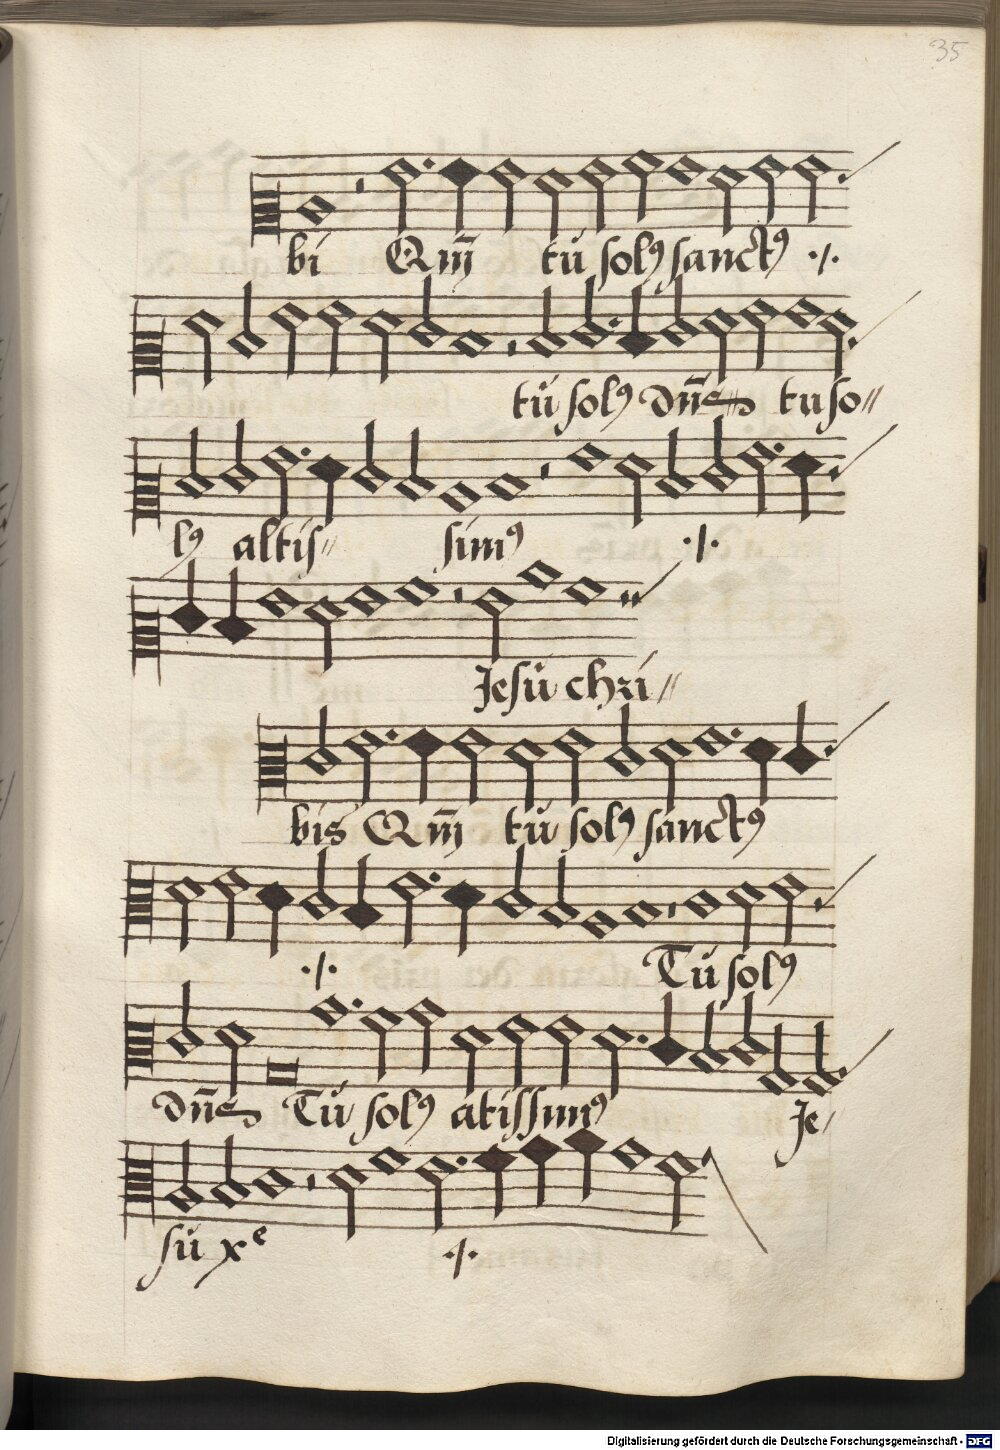 35
bi Qm̄ tu solꝰ sanctꝰ ·/·
tu solꝰ dn̄s tu so//
lꝰ altis// simꝰ ·/·
Jesu chri//
bis Qm̄ tu solꝰ sanctꝰ
·/· Tu solꝰ
dn̄s Tu solꝰ atissimꝰ Je//
su xᵉ ·/·
Digitalisierung gefördert durch die Deutsche Forschungsgemeinschaft - DFG